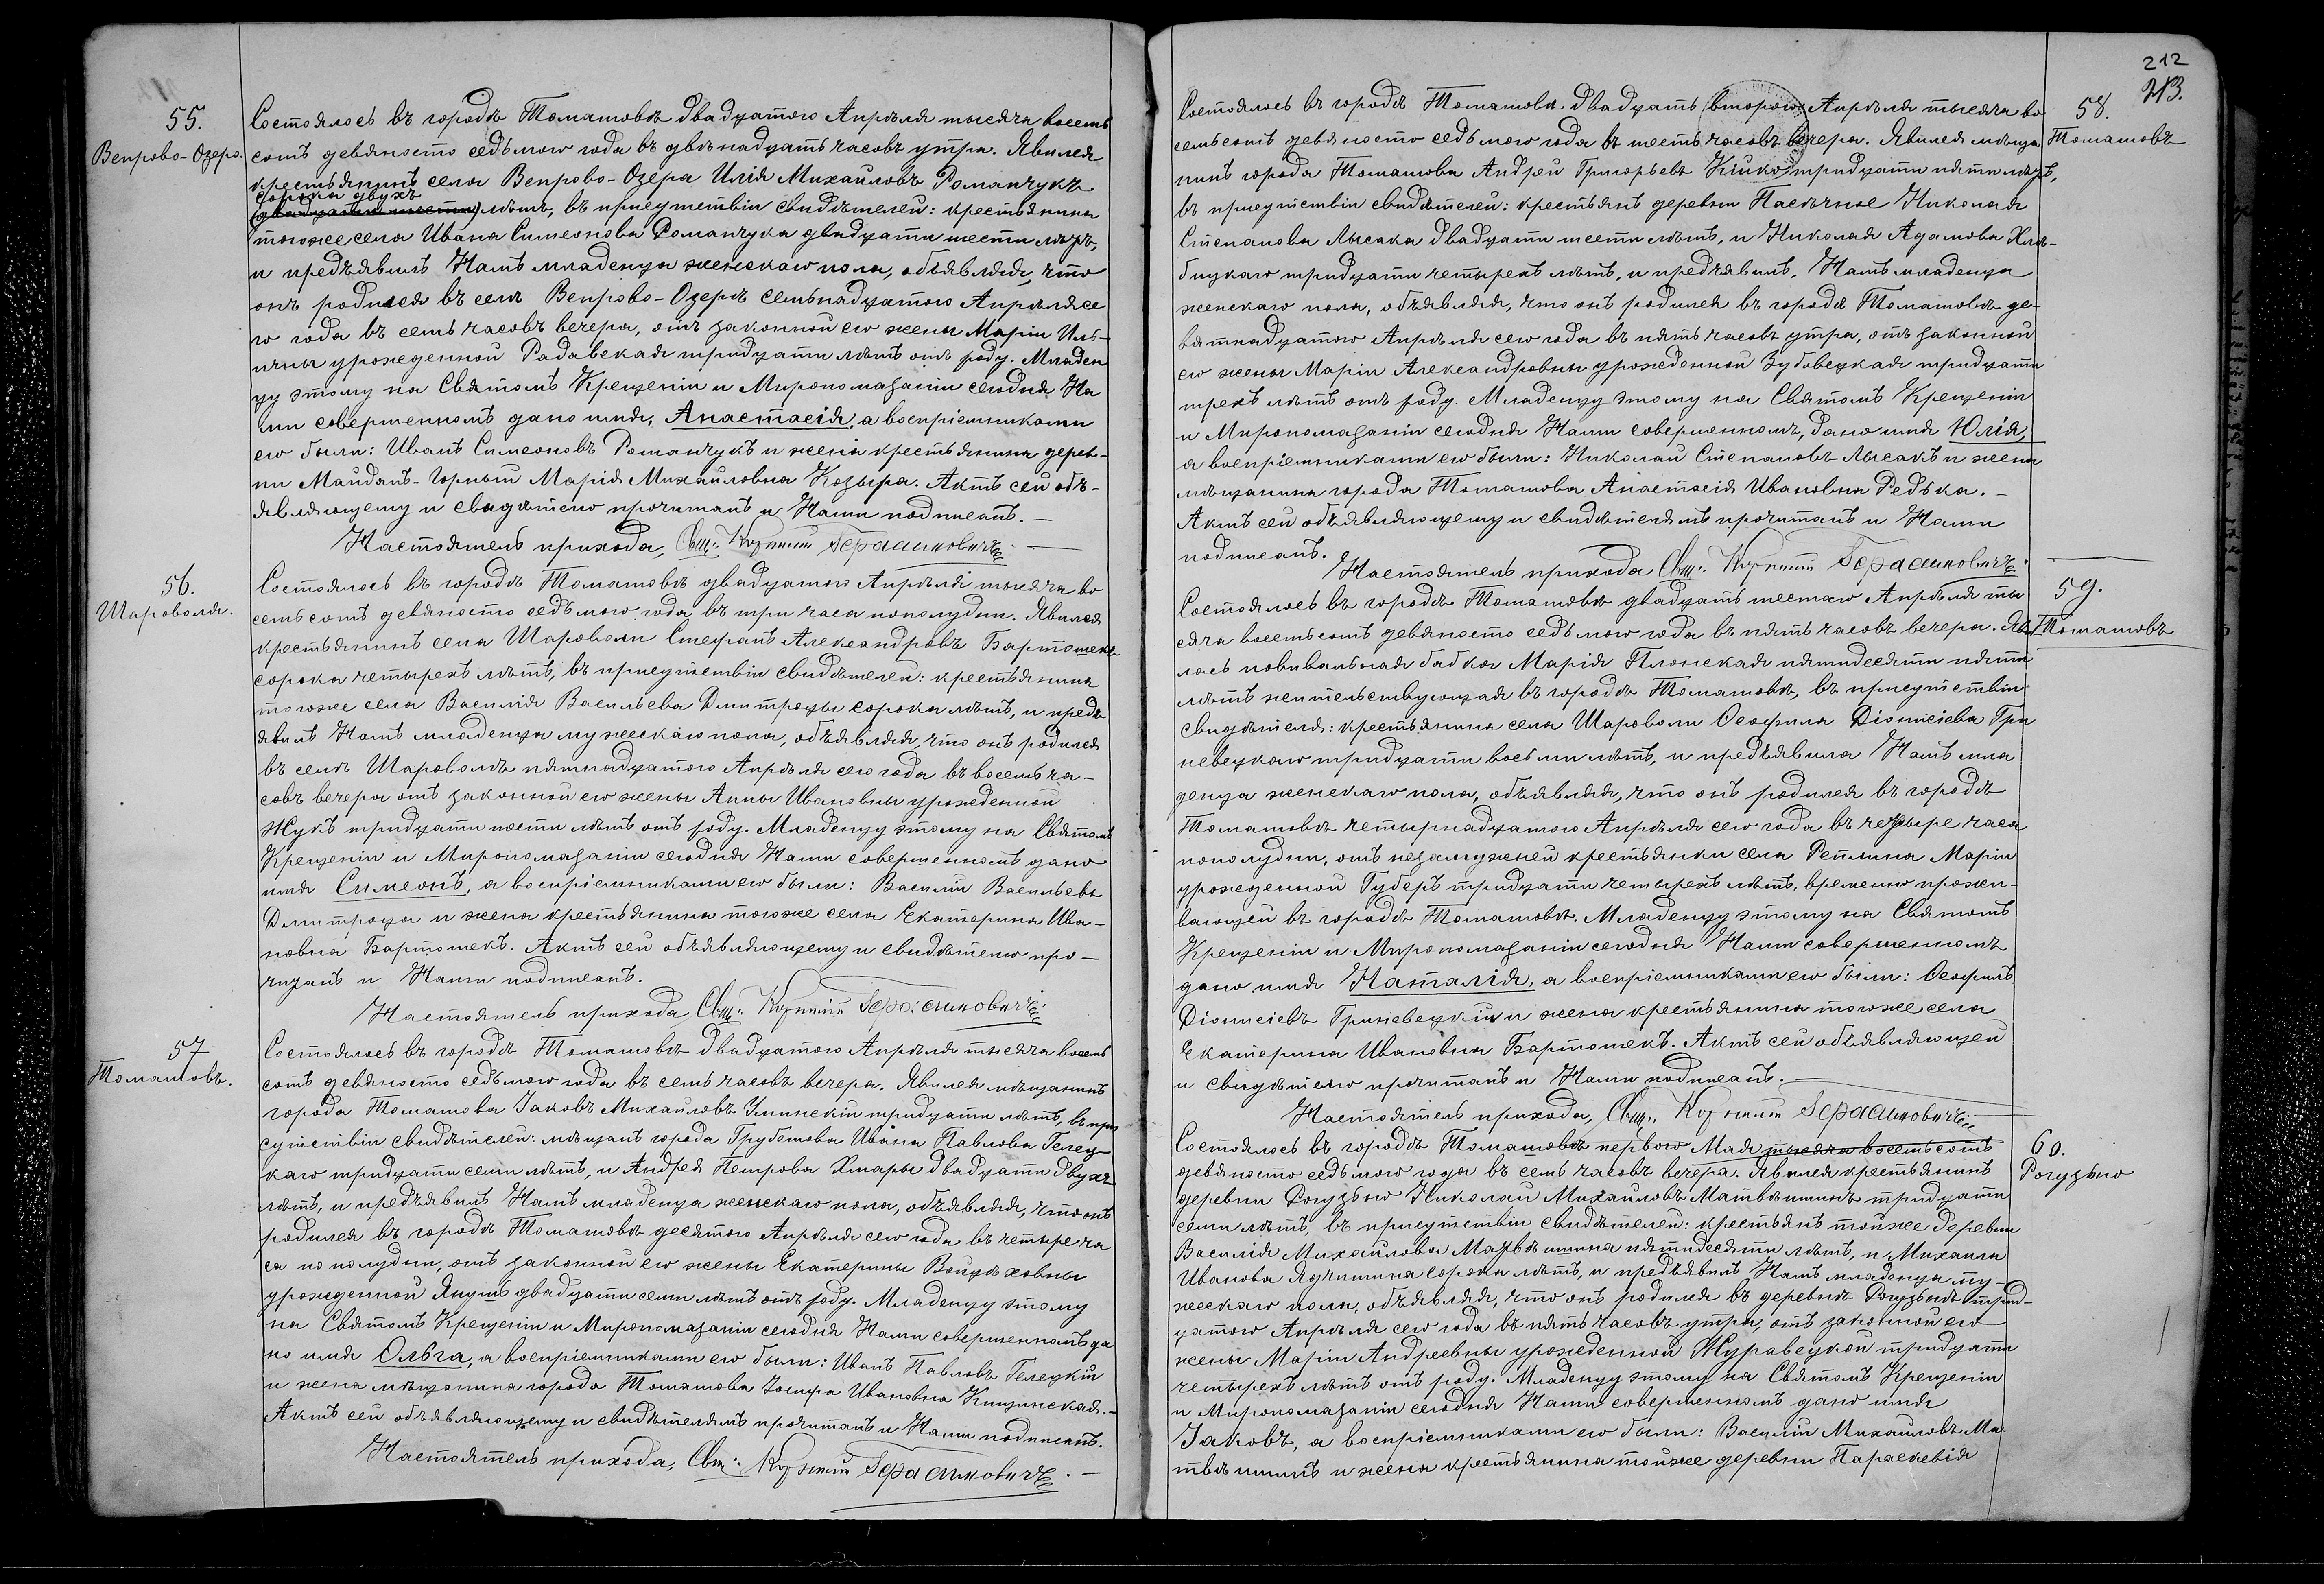 55.
Вепрово-Озеро.
Состоялось въ городѣ Томашовѣ двадцатого Апрѣля тысяча восемь
сотъ девяносто седьмого года въ двѣнадцать часовъ утра. Явился
крестьянинъ села Вепрово-Озера Илія Михайловъ Романчукъ
сорока двухъ
(двадцати шести) лѣтъ, въ присутствіи свидѣтелей: крестьянина
тогоже села Ивана Симеонова Романчука двадцати шести лѣтъ,
и предъявилъ Намъ младенца женскаго пола, объявляя, что
онъ родился въ селѣ Вепрово-Озерѣ семьнадцатого Апрѣля се
го года въ семь часовъ вечера, отъ законной его жены Маріи Иль-
ичны урожденной Радавская тридцати лѣтъ отъ роду. Младен
цу этому на Святомъ Крещеніи и Миропомазаніи сегодня На
ми совершенномъ дано имя, Анастасія, а воспріемниками
его были: Иванъ Симеоновъ Романчукъ и жена крестьянина дерев-
ни Майданъ-Горный Марія Михайловна Козыра. Актъ сей объ-
являющему и свидѣтелю прочитанъ и Нами подписанъ. —
Настоятель прихода, Свящ. Корнилій Герасимовичъ
56.
Шароволя.
Состоялось въ городѣ Томашовѣ двадцатого Апрѣля тысяча во
семьсотъ девяносто седьмого года, въ три часа пополудни. Явился
крестьянинъ села Шароволи Стефанъ Александровъ Бартошекъ
сорока четырехъ лѣтъ, въ присутствіи свидѣтелей: крестьянина
тогоже села Василія Васильева Дмитроцы сорока лѣтъ, и предъ
явилъ Намъ младенца мужескаго пола, объявляя, что онъ родился
въ селѣ Шароволѣ пятнадцатого Апрѣля сего года въ восемь ча-
совъ вечера отъ законной его жены Анны Ивановны урожденной
Жукъ тридцати шести лѣтъ отъ роду. Младенцу этому на Святомъ
Крещеніи и Миропомазаніи сегодня Нами совершенномъ дано
имя Симеонъ, а воспріемниками его были: Василій Васильевъ
Дмитроца и жена крестьянина тогоже села Екатерина Ива-
новна Бартошекъ. Актъ сей объявляющему и свидѣтелю про-
читанъ и Нами подписанъ.
Настоятель прихода, Свящ. Корнилій Герасимовичъ
57
Томашовъ.
Состоялось въ городѣ Томашовѣ двадцатого Апрѣля тысяча восемь
сотъ девяносто седьмого года въ семь часовъ вечера. Явился мѣщанинъ
города Томашова Іаковъ Михайловъ Уминскій тридцати лѣтъ, въ при
сутствіи свидѣтелей: мѣщанъ города Грубешова Ивана Павлова Гелец-
каго тридцати семи лѣтъ, и Андрея Петрова Хмары двадцати двухъ
лѣтъ, и предъявилъ Намъ младенца женскаго пола, объявляя, что онъ
родился въ городѣ Томашовѣ десятого Апрѣля сего года въ четыре ча
са по полудни, отъ законной его жены Екатерины Войцѣховны
урожденной Янушъ двадцати семи лѣтъ отъ роду. Младенцу этому
на Святомъ Крещеніи и Миропомазаніи сегодня Нами совершенномъ да
но имя Ольга, а воспріемниками его были: Иванъ Павловъ Гелецкій
и жена мѣщанина города Томашова Іосифа Ивановна Кищинская. —
Актъ сей объявляющему и свидѣтелямъ прочитанъ и Нами подписанъ.
Настоятель прихода, Свящ. Корнилій Герасимовичъ. —
212
213.
58.
Томашовъ
Состоялось въ городѣ Томашовѣ двадцать второго Апрѣля тысяча во
семьсотъ девяносто седьмого года въ шесть часовъ вечера. Явился мѣща
нинъ города Томашова Андрей Григорьевъ Кійко, тридцати пяти лѣтъ,
въ присутствіи свидѣтелей: крестьянъ деревни Пасѣчное Николая
Степанова Лысака двадцати шести лѣтъ, и Николая Адамова Хлѣ-
бицкаго тридцати четырехъ лѣтъ, и предъявилъ, Намъ младенца
женскаго пола, объявляя, что онъ родился въ городѣ Томашовѣ де-
вятнадцатого Апрѣля сего года въ пять часовъ утра, отъ законной
его жены Маріи Александровны урожденной Зубовецкая тридцати
трехъ лѣтъ отъ роду. Младенцу этому на Святомъ Крещеніи
и Миропомазаніи сегодня Нами совершенномъ, дано имя Юлія,
а воспріемниками его были: Николай Степановъ Лысакъ и жена
мѣщанина города Томашова Анастасія Ивановна Редька. —
Актъ сей объявляющему и свидѣтелямъ прочитанъ и Нами
подписанъ.
Настоятель прихода Свящ. Корнилій Герасимовичъ.
59.
Томашовъ
Состоялось въ городѣ Томашовѣ двадцать шестаго Апрѣля ты
сяча восемьсотъ девяносто седьмого года въ пять часовъ вечера. Яви
лась повивальная бабка Марія Плонская пятидесяти пяти
лѣтъ жительствующая въ городѣ Томашовѣ, въ присутствіи
свидѣтеля: крестьянина села Шароволи Ѳеофила Діонисіева Гри
невецкаго тридцати восьми лѣтъ, и предъявила Намъ мла
денца женскаго пола, объявляя, что онъ родился въ городѣ
Томашовѣ четырнадцатого Апрѣля сего года въ четыре часа
пополудни, отъ незамужней крестьянки села Реплина Маріи
урожденной Губеръ тридцати четырехъ лѣтъ, временно прожи-
вающей въ городѣ Томашовѣ. Младенцу этому на Святомъ
Крещеніи и Миропомазаніи сегодня Нами совершенномъ
дано имя Наталія, а воспріемниками его были: Ѳеофилъ
Діонисіевъ Гриневецкій и жена крестьянина тогоже села
Екатерина Ивановна Бартошекъ. Актъ сей объявляющей
и свидѣтелю прочитанъ и Нами подписанъ. —
Настоятель прихода, Свящ. Корнилій Герасимовичъ
60.
Рогузьно
Состоялось въ городѣ Томашовѣ перваго Мая тысяча восемьсотъ
девяносто седьмого года въ семь часовъ вечера. Явился крестьянинъ
деревни Рогузьно Николай Михайловъ Матвѣишинъ тридцати
семи лѣтъ, въ присутствіи свидѣтелей: крестьянъ тойже деревни
Василія Михайлова Матвѣишина пятидесяти лѣтъ, и Михаила
Иванова Ядчишина сорока лѣтъ, и предъявилъ Намъ младенца му-
жескаго пола, объявляя, что онъ родился въ деревнѣ Рогузьнѣ трид-
цатого Апрѣля сего года въ пять часовъ утра, отъ законной его
жены Маріи Андреевны урожденной Журавецкой тридцати
четырехъ лѣтъ отъ роду. Младенцу этому на Святомъ Крещеніи
и Миропомазаніи сегодня Нами совершенномъ дано имя
Іаковъ, а воспріемниками его были: Василій Михайловъ Ма-
твѣишинъ и жена крестьянина тойже деревни Параскевія